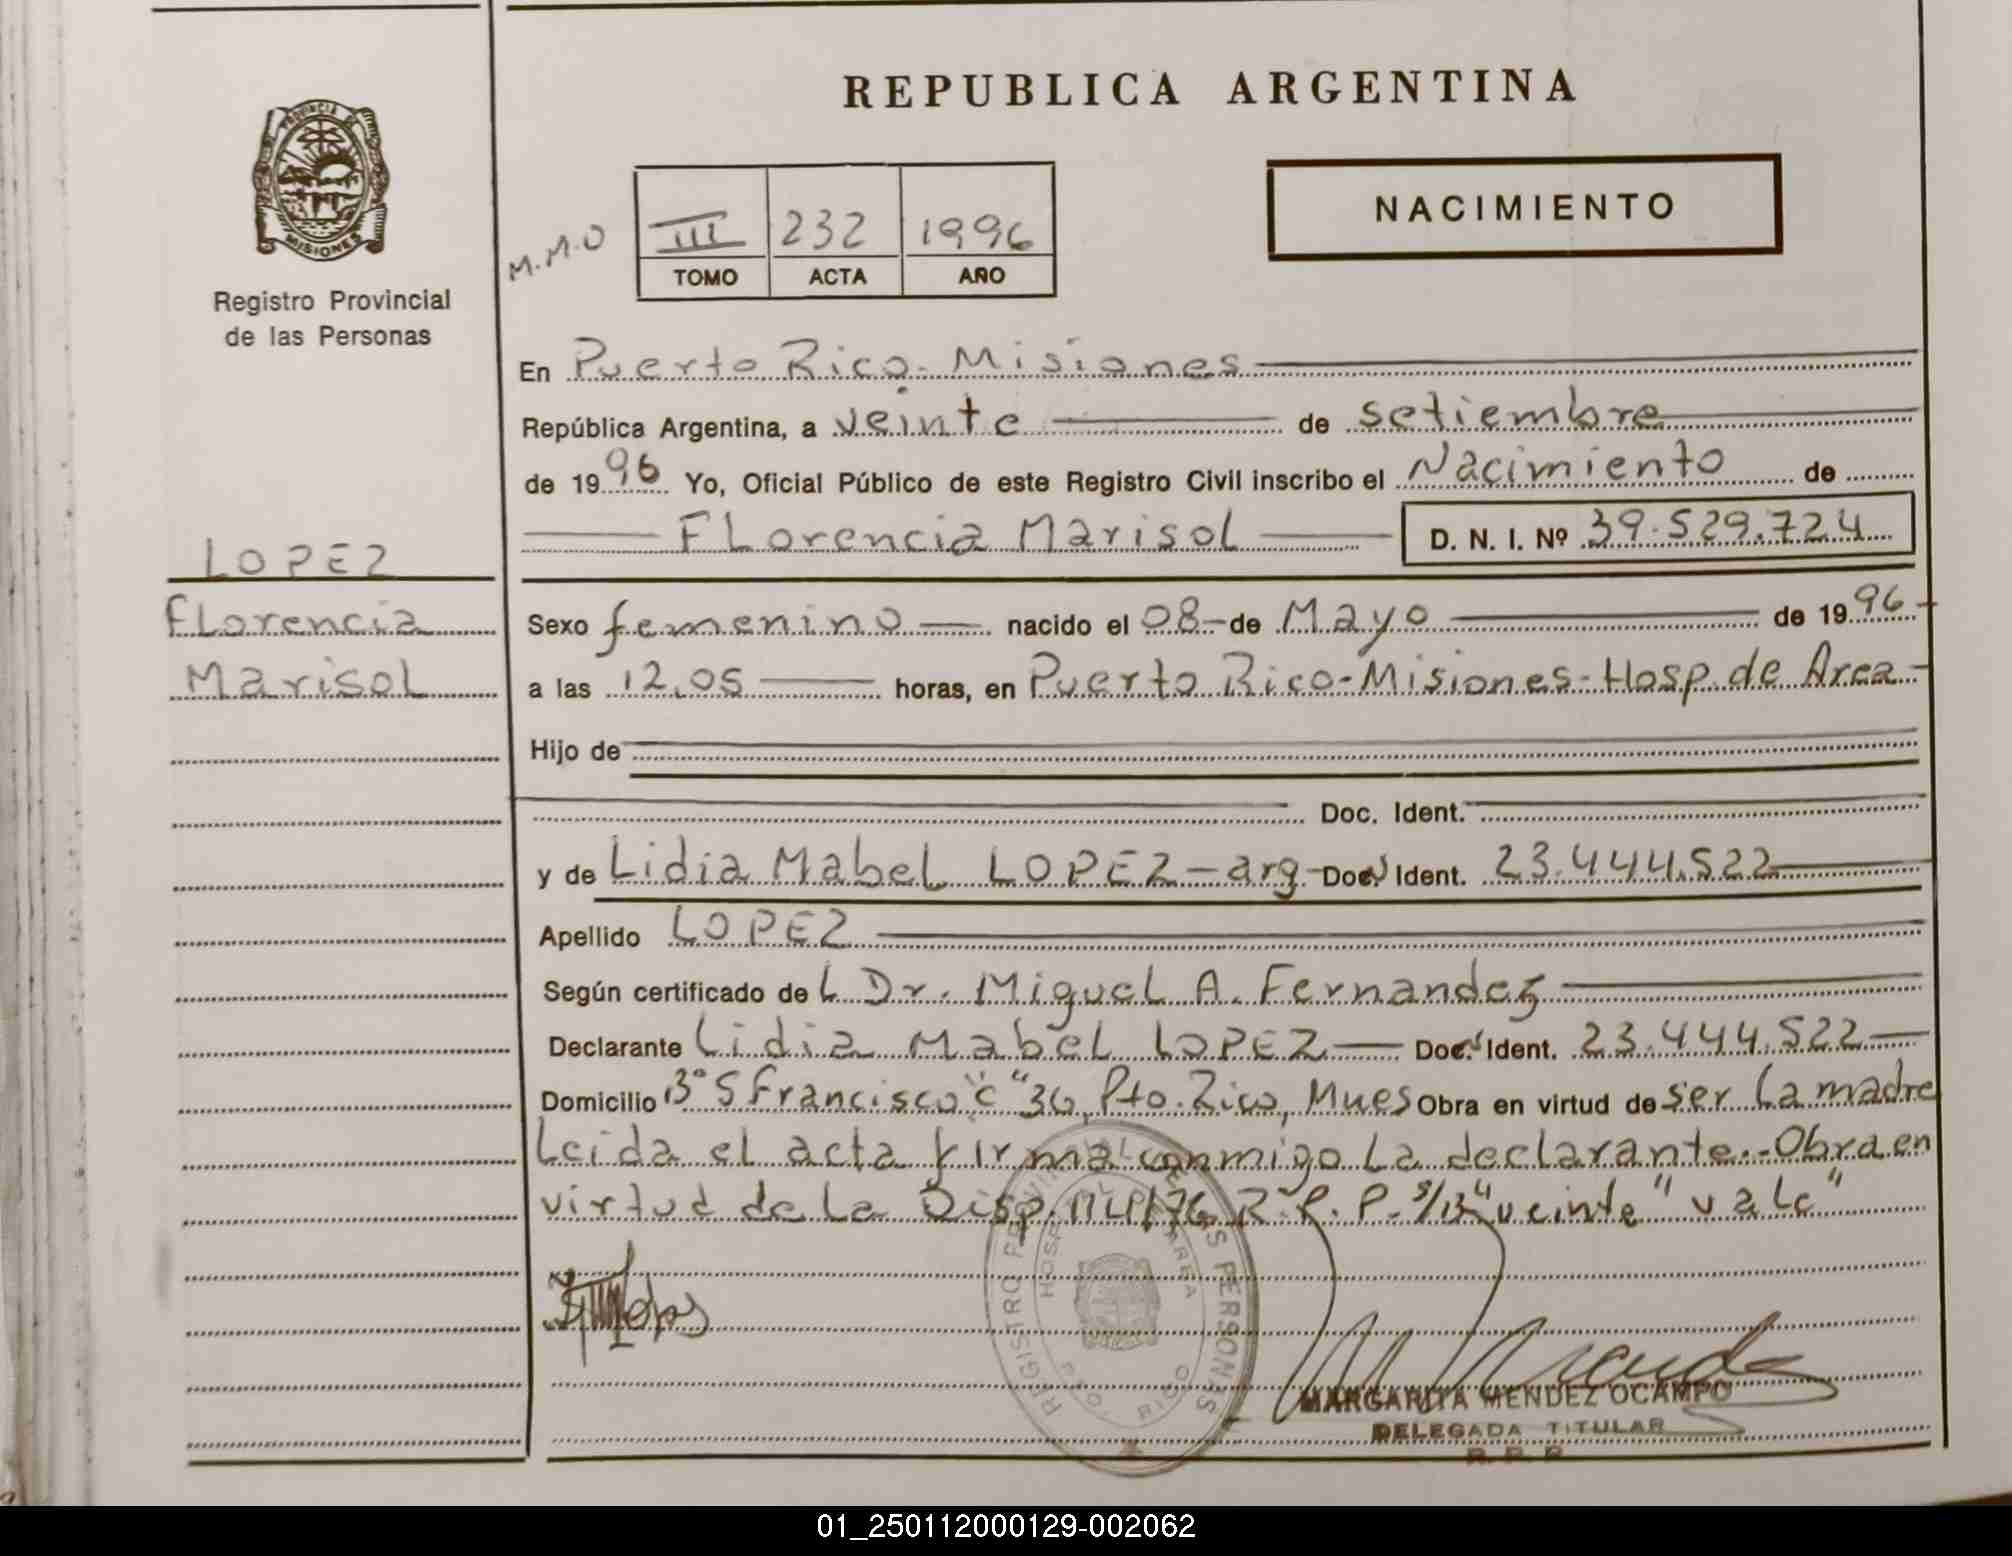 REPUBLICA ARGENTINA
PROVINCIA DE
MISIONES
Registro Provincial
de las Personas
M.M.O
III 232 1996
TOMO ACTA AÑO
NACIMIENTO
En Puerto Rico. Misiones
República Argentina, a veinte de setiembre
de 1996 Yo, Oficial Público de este Registro Civil inscribo el Nacimiento de
Florencia Marisol D. N. I. Nº 39.529.724
LOPEZ
Florencia
Marisol
Sexo femenino nacido el 08-de Mayo de 1996-
a las 12.05 horas, en Puerto Rico-Misiones-Hosp. de Area-
Hijo de
Doc. Ident.
y de Lidia Mabel LOPEZ-arg-Doc. Ident. 23.444.522
Apellido LOPEZ
Según certificado del Dr. Miguel A. Fernandez
Declarante Lidia Mabel LOPEZ Doc. Ident. 23.444.522
Domicilio Bº S Francisco "C" 36, Pto. Rico, Mnes Obra en virtud de ser la madre
Leida el acta firma conmigo la declarante.-Obra en
virtud de la Disp. R.P.P. s/b "veinte" vale"
REGISTRO PROVINCIAL DE LAS PERSONAS
HOSPITAL AREA
PTO. RICO
MARGARITA MENDEZ OCAMPO
DELEGADA TITULAR
R. P. P.
01_250112000129-002062